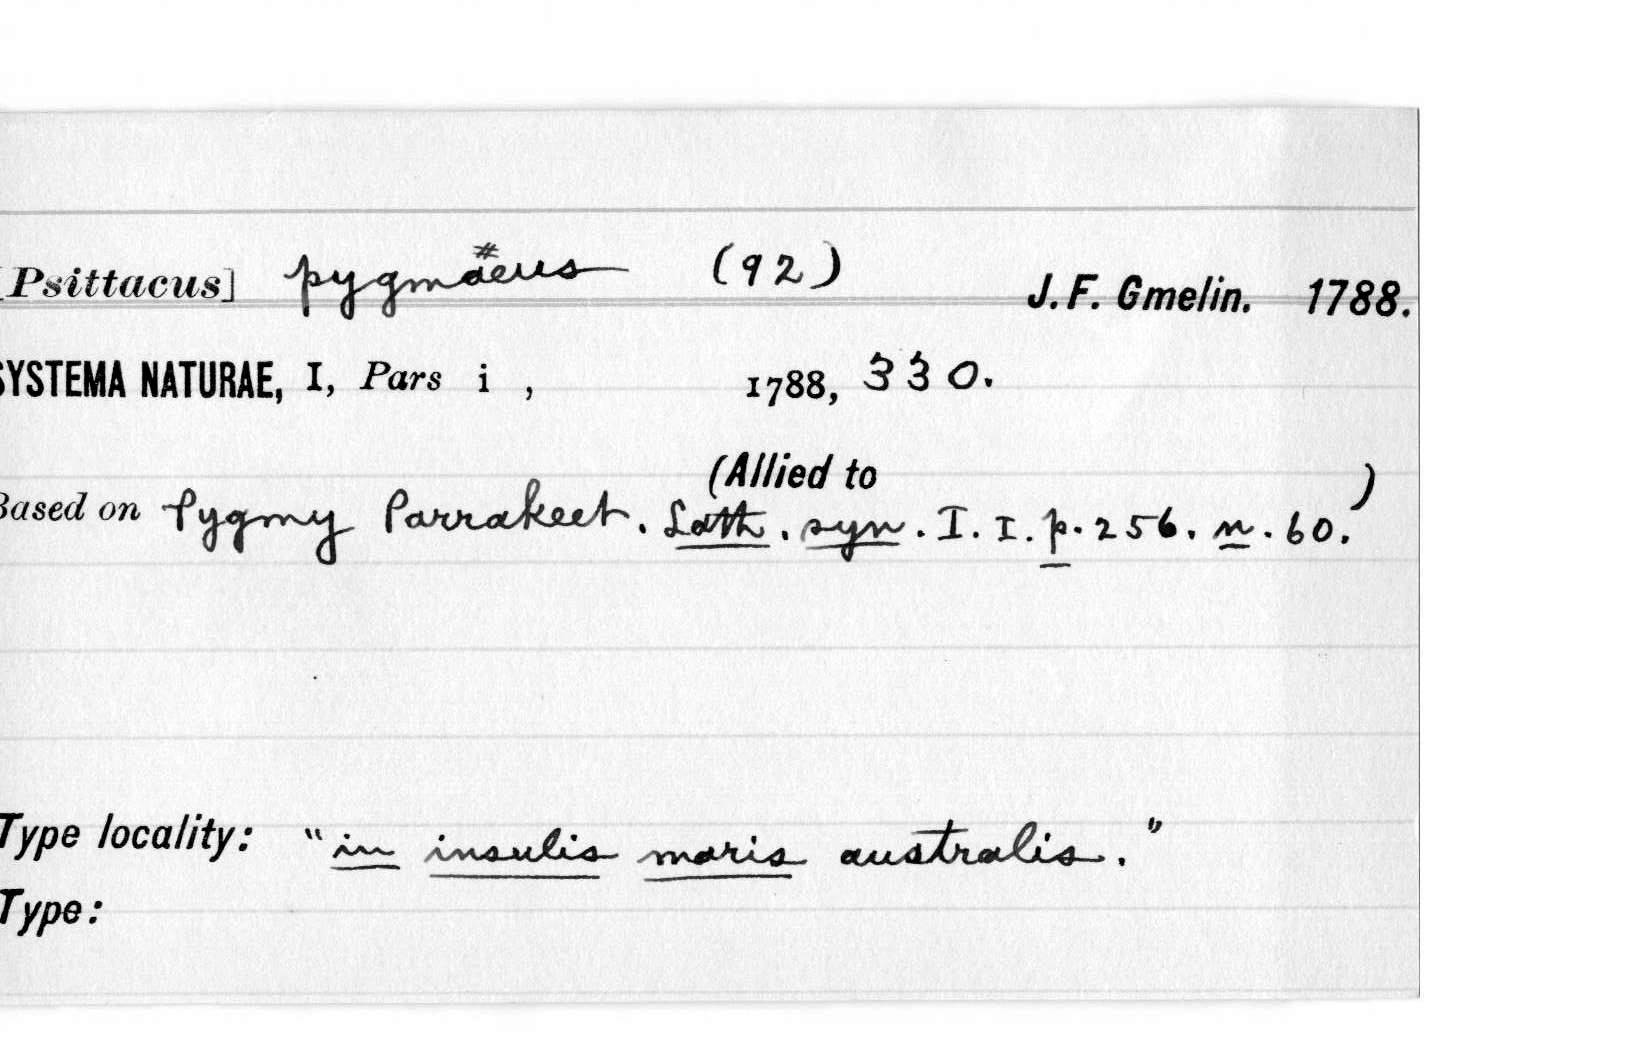 [Psittacus] pygmaeus (92) J. F. Gmelin. 1788.
SYSTEMA NATURAE, I, Pars i , 1788, 330.
(Allied to
Based on Pygmy Parrakeet. Lath. syn. I. I. p. 256. n. 60.)
Type locality: "in insulis maris australis."
Type: